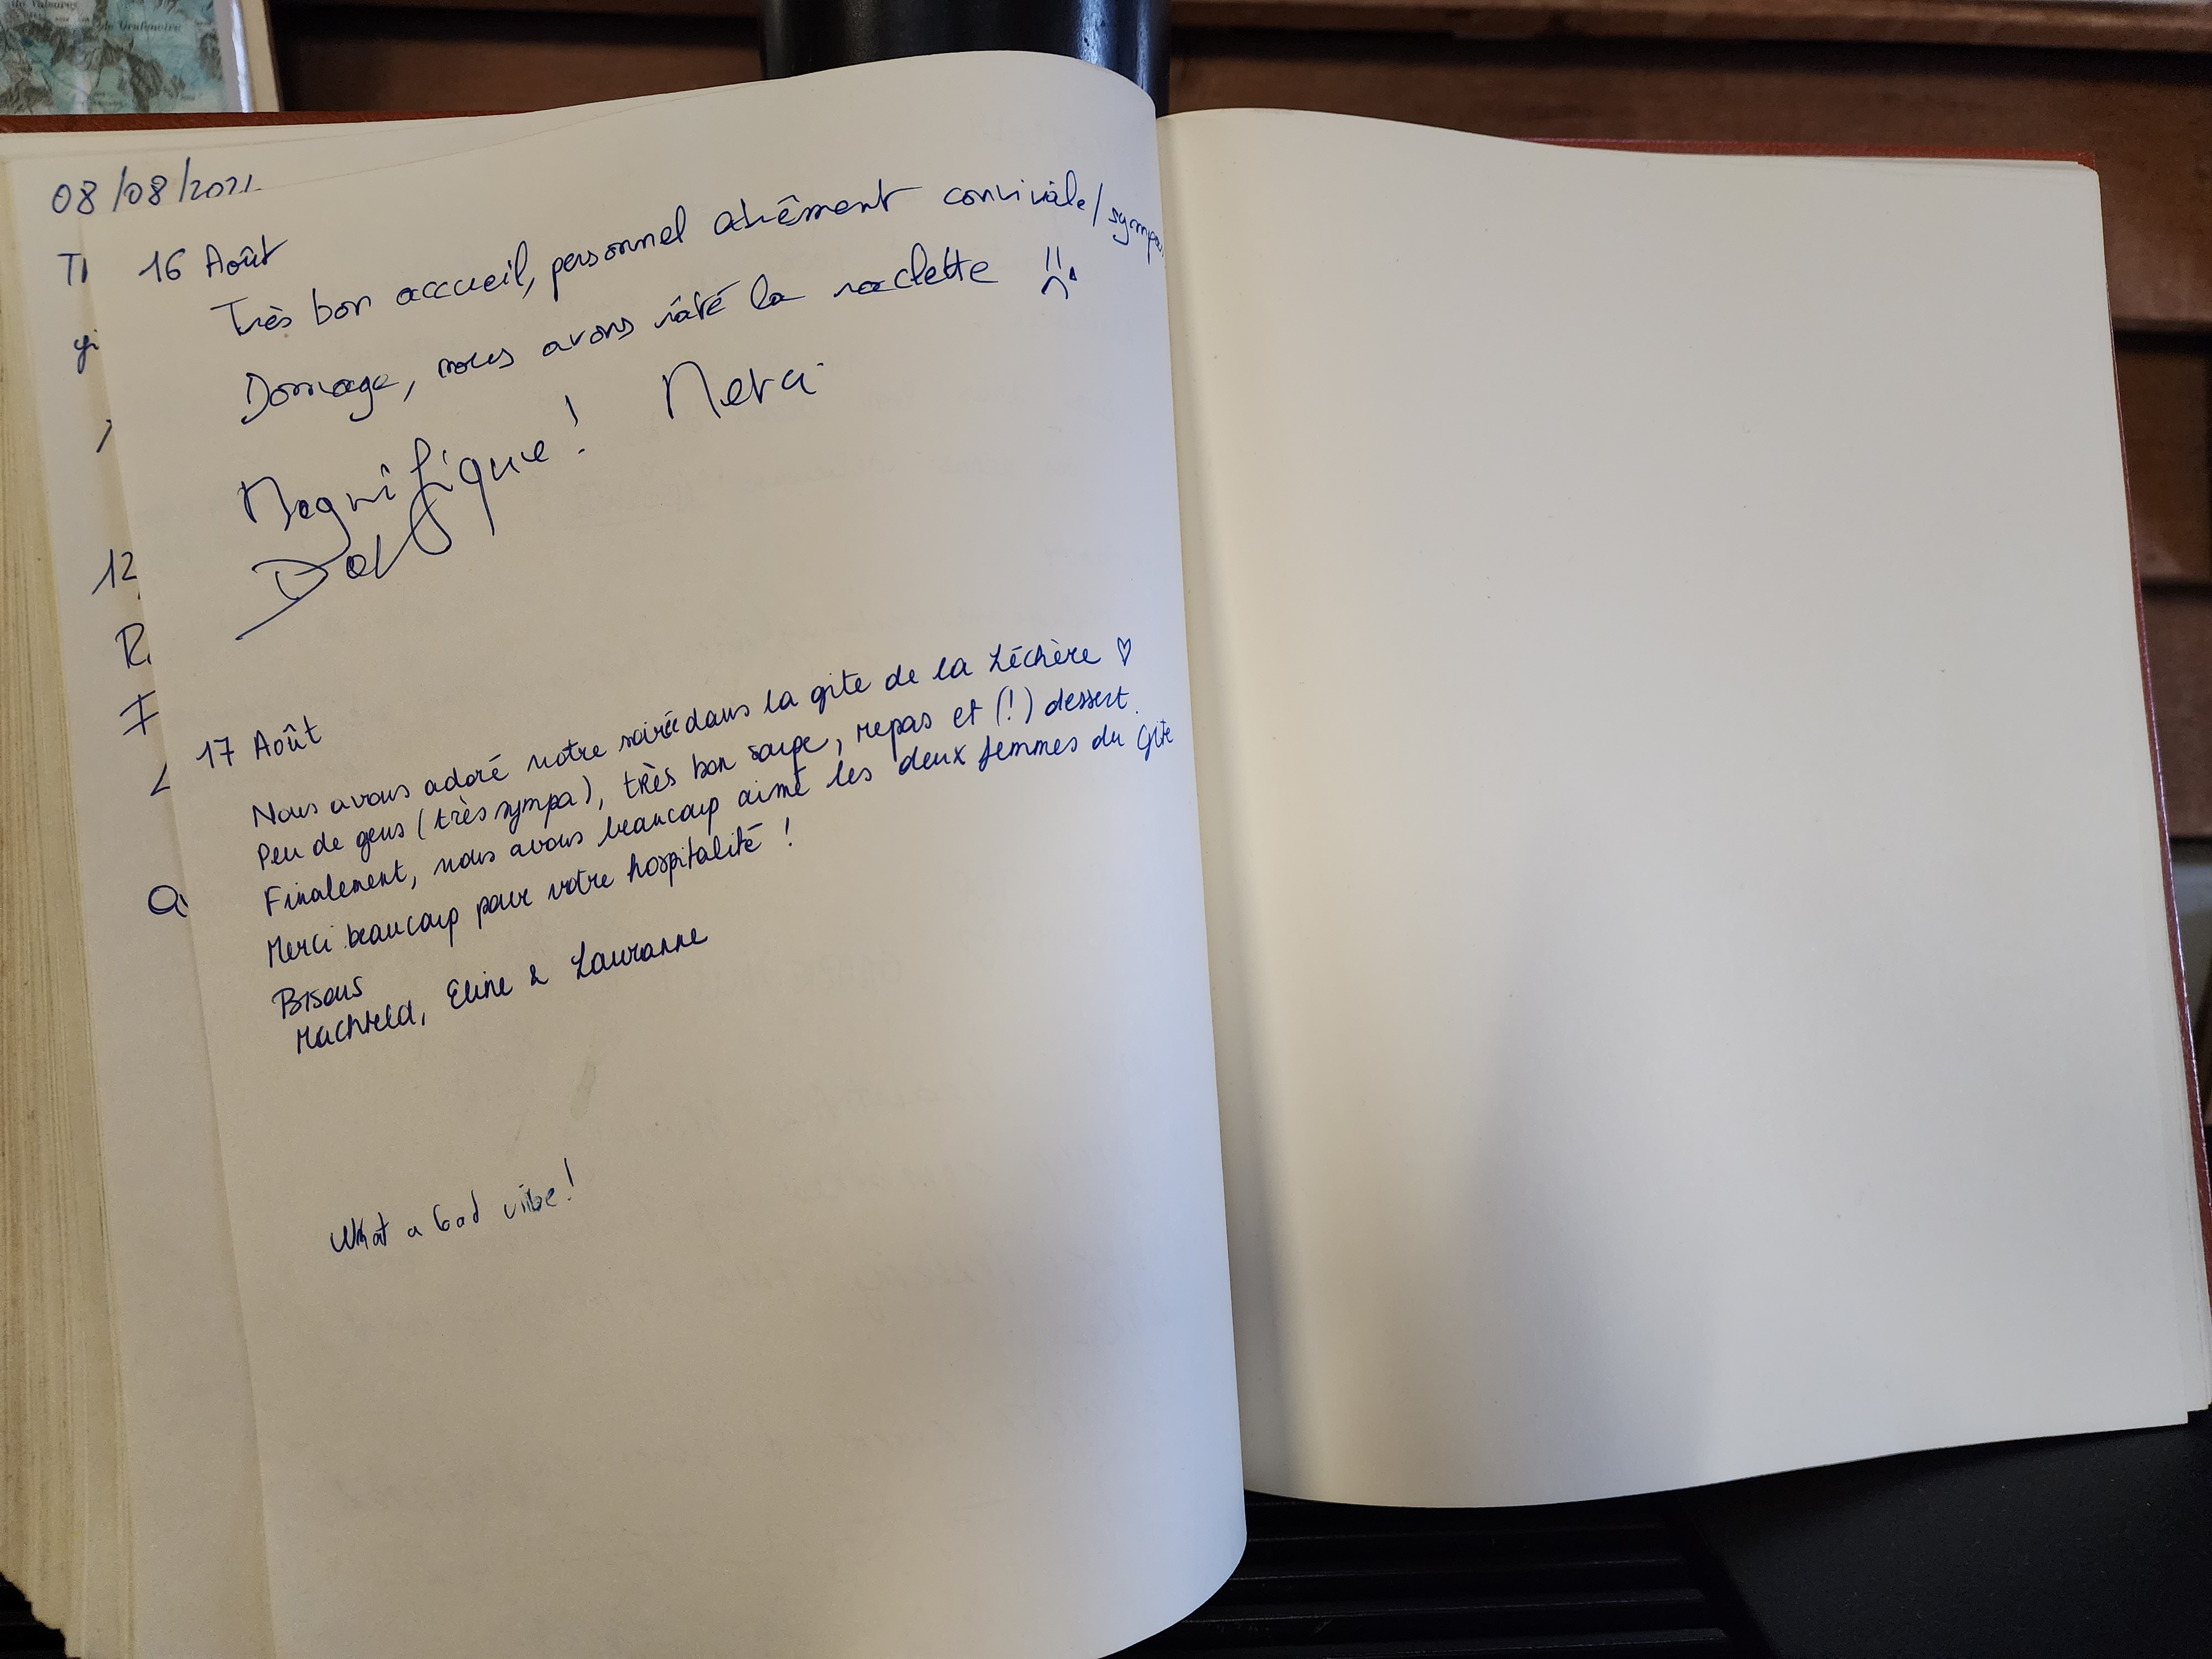 de Valsures
08/08/2021
16 Août
Très bon accueil, personnel conviviale/sympa
Dommage, nous avons raté la raclette
Magnifique! Merci
17 Août
Nous avons adoré notre soirée dans la gite de la Léchère ♡
Peu de gens (très sympa), très bon soupe, repas et (!) dessert.
Finalement, nous avons beaucoup aimé les deux femmes du gîte
Merci beaucoup pour votre hospitalité !
Bisous
Machteld, Eline & Lauranne
What a Good vibe!